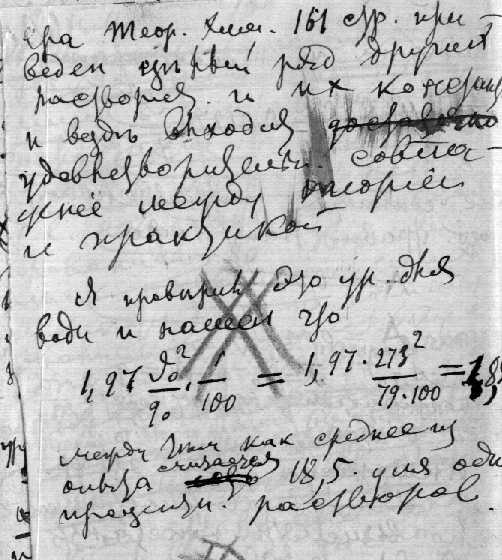 ера Теор. Хим. 161 стр. при-
веден цѣлый ряд других
растворил. и их
и вездѣ выходил
удовлетворительн. совпа-
между теорией
и практикой
Я проверил это ур. для
воды и нашел что
1,97 ϑ₀²/q₀ · 1/100 = 1,97 · 273²/79·100 = 18
между тем как среднее из
опыта считается 18,5. для одно
процентн. растворов